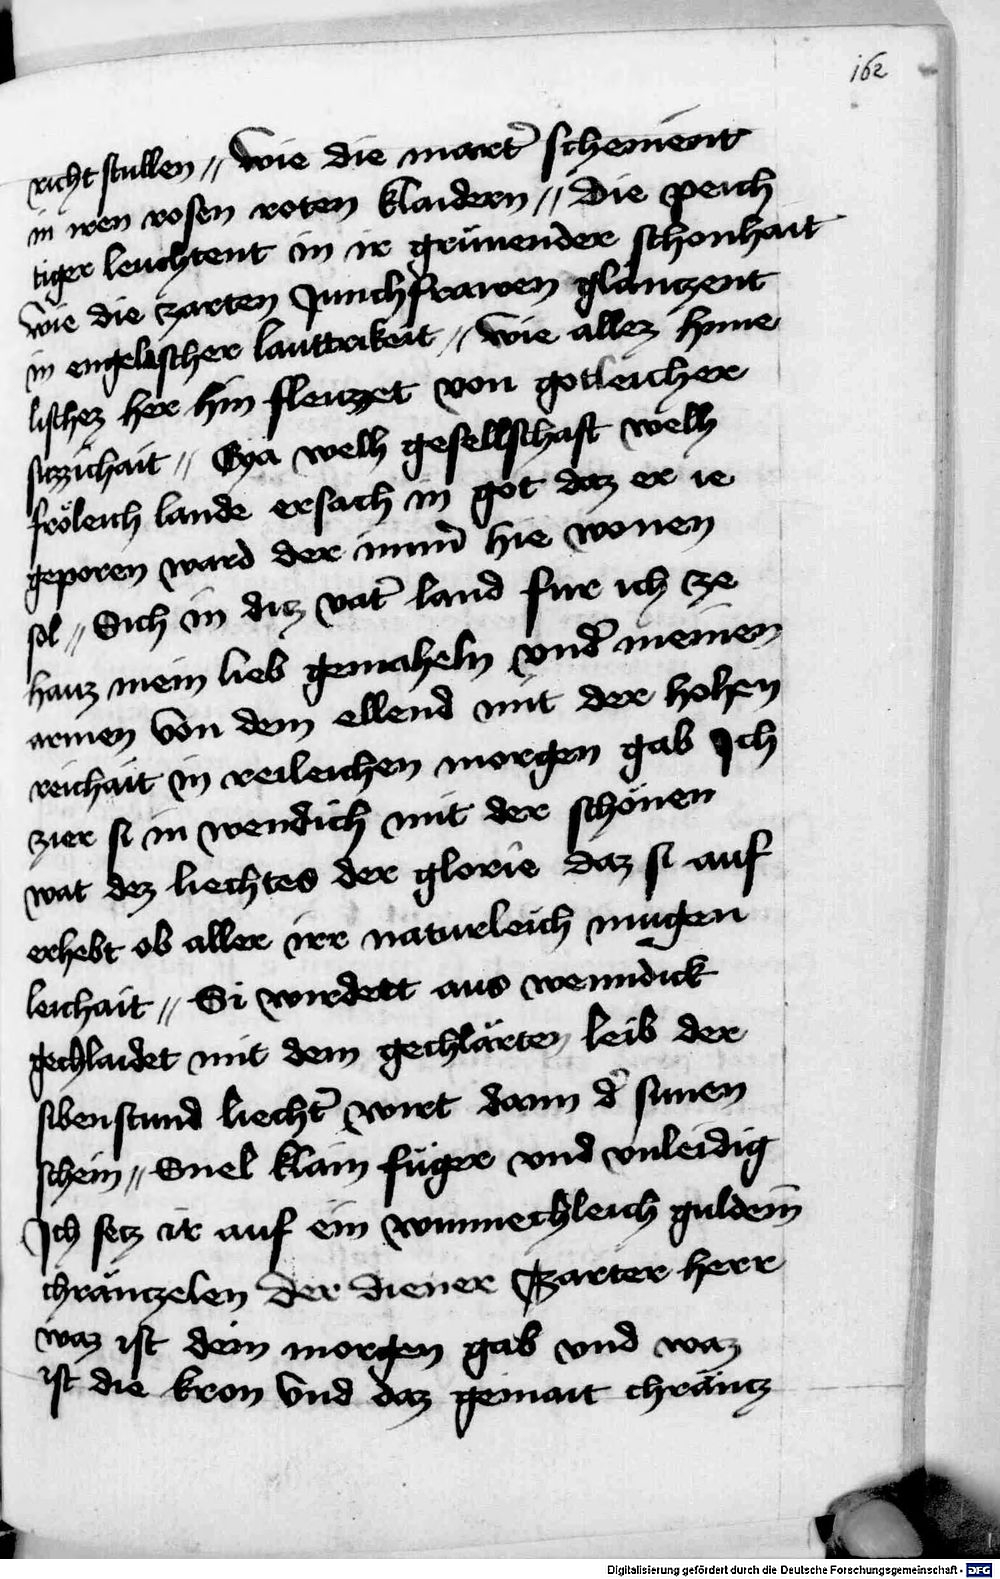 162
richt stullen // wie die mart̛ scheinent
in iren rosen roten klaidern // Die peich
tiger leuchtent in ir grünender schonhait
wie die zarten Junchfrawen glantzent
in engelischer lauttrikeit // wie allez hyme
lischez her hin fleuzzet von gotleicher
suzzichait // Eya welh gesellschaft welh
fröleich lande ersach in got daz er ie
geporen ward der imm̛ hie wonen
sol // Sich in ditz vat̛ land fur ich ze
hauz mein lieb gemaheln vnd̛ meinen
armen von dem ellend mit der hohen
reichait in reileichen morgen gab Ich
zier si in wendich mit der schönen
wat dez liechtes der glorie daz si auf
erhebt ob aller irr naturleich mugen
leichait // Si wirdett aus wenndick
gechlaidet mit dem gechlärten leib der
siben stund liecht̛ wirt dann d̛ sunen
schein // Snel klain füger vnd vnleidig
Ich setz ir auf ein wunnechleich guldein
chräntzelen der diener Zarter herr
waz ist dein morgen gab vnd waz
ist die kron vnd daz gemait chräntz
Digitalisierung gefördert durch die Deutsche Forschungsgemeinschaft - DFG